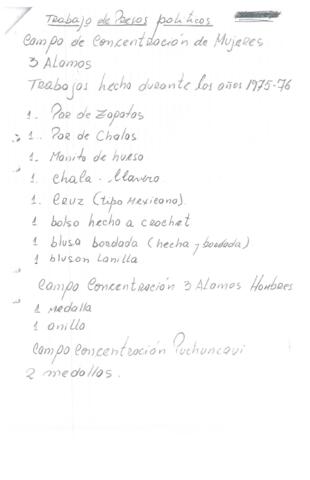 Trabajo de Presos políticos
Campo de Concentración de Mujeres
3 Alamos
Trabajos hecho durante los años 1975-76
1. Par de Zapatos
1.. Par de Chalas
1. Manito de hueso
1. Chala - llavero
1. Cruz (tipo Mexicano)
1 bolso hecho a crochet
1 blusa bordada (hecha y bordada)
1 bluson Lanilla
Campo Concentración 3 Alamos Hombres
1 Medalla
1 anillo
Campo Concentración Puchuncavi
2 medallas.